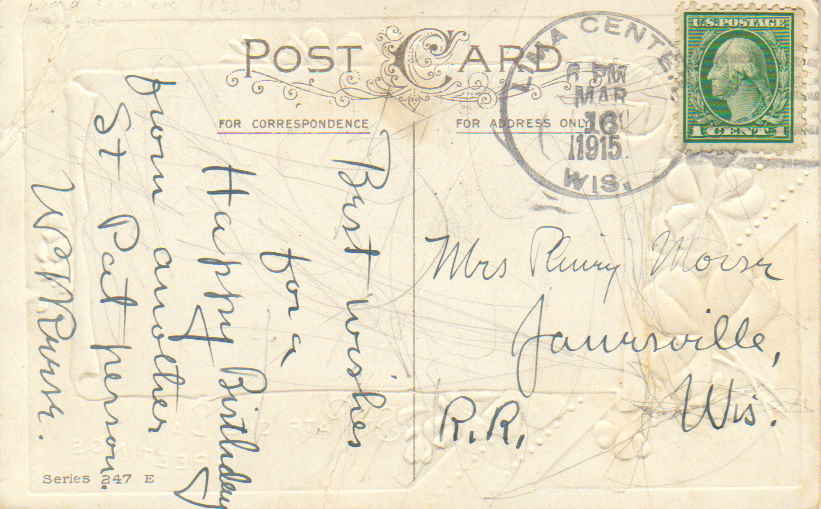 POST CARD
FOR CORRESPONDENCE
FOR ADDRESS ONLY
LIMA CENTER
6 PM
MAR
16
1915
WIS.
U.S. POSTAGE
1 CENT 1
Best wishes
for a
Happy Birthday
from another
St Pat person.
Mrs Henry Morse
Janesville,
Wis.
R.R.
Series 247 E